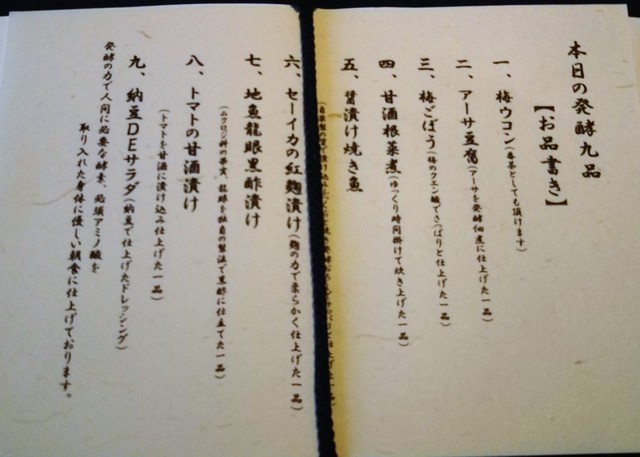 本日の発酵九品
【お品書き】
一、梅ウコン(春茶としても頂けます)
二、アーサ豆腐(アーサを発酵佃煮に仕上げた一品)
三、梅ごぼう(梅のクエン酸でさっぱりと仕上げた一品)
四、甘酒根菜煮(ゆっくり時間掛けて炊き上げた一品)
五、醤漬け焼き魚
六、セーイカの紅麹漬け(麹の力で柔らかく仕上げた一品)
七、地魚龍眼黒酢漬け
(ムクロジ科の果実、龍眼を独自の製法で黒酢に仕立てた一品)
八、トマトの甘酒漬け
(トマトを甘酒に漬け込み仕上げた一品)
九、納豆DEサラダ(納豆で仕上げたドレッシング)
発酵の力で人間に必要な酵素、必須アミノ酸を
取り入れた身体に優しい朝食に仕上げております。